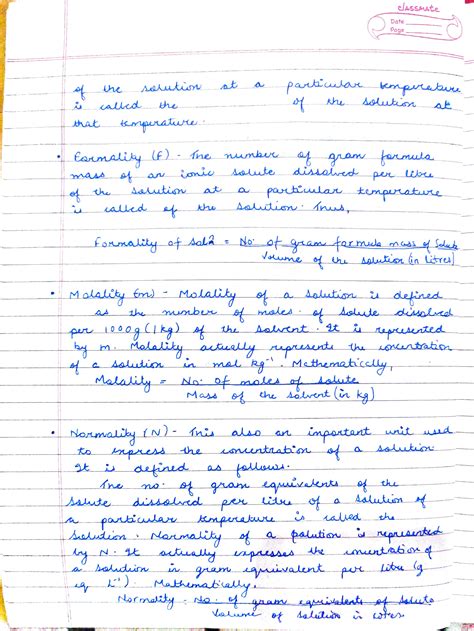 classmate
Date
Page
of the solution at a particular temperature
is called the of the solution at
that temperature.
• Formality (F) - The number of gram formula
mass of an ionic solute dissolved per litre
of the solution at a particular temperature
is called of the solution. Thus,
Formality of sol2 = No. of gram formula mass of solute
Volume of the solution (in litres)
• Molality (m) - Molality of a solution is defined
as the number of moles of solute dissolved
per 1000g (1kg) of the solvent. It is represented
by m. Molality actually represents the concentration
of a solution in mol kg⁻¹. Mathematically,
Molality = No. of moles of solute
Mass of the solvent (in kg)
• Normality (N) - This also an important unit used
to express the concentration of a solution
It is defined as follows.
The no. of gram equivalents of the
solute dissolved per litre of a solution of
a particular temperature is called the
solution. Normality of a solution is represented
by N. It actually expresses the concentration of
a solution in gram equivalent per litre (g
eq L⁻¹). Mathematically,
Normality = No. of gram equivalents of solute
Volume of solution in litres